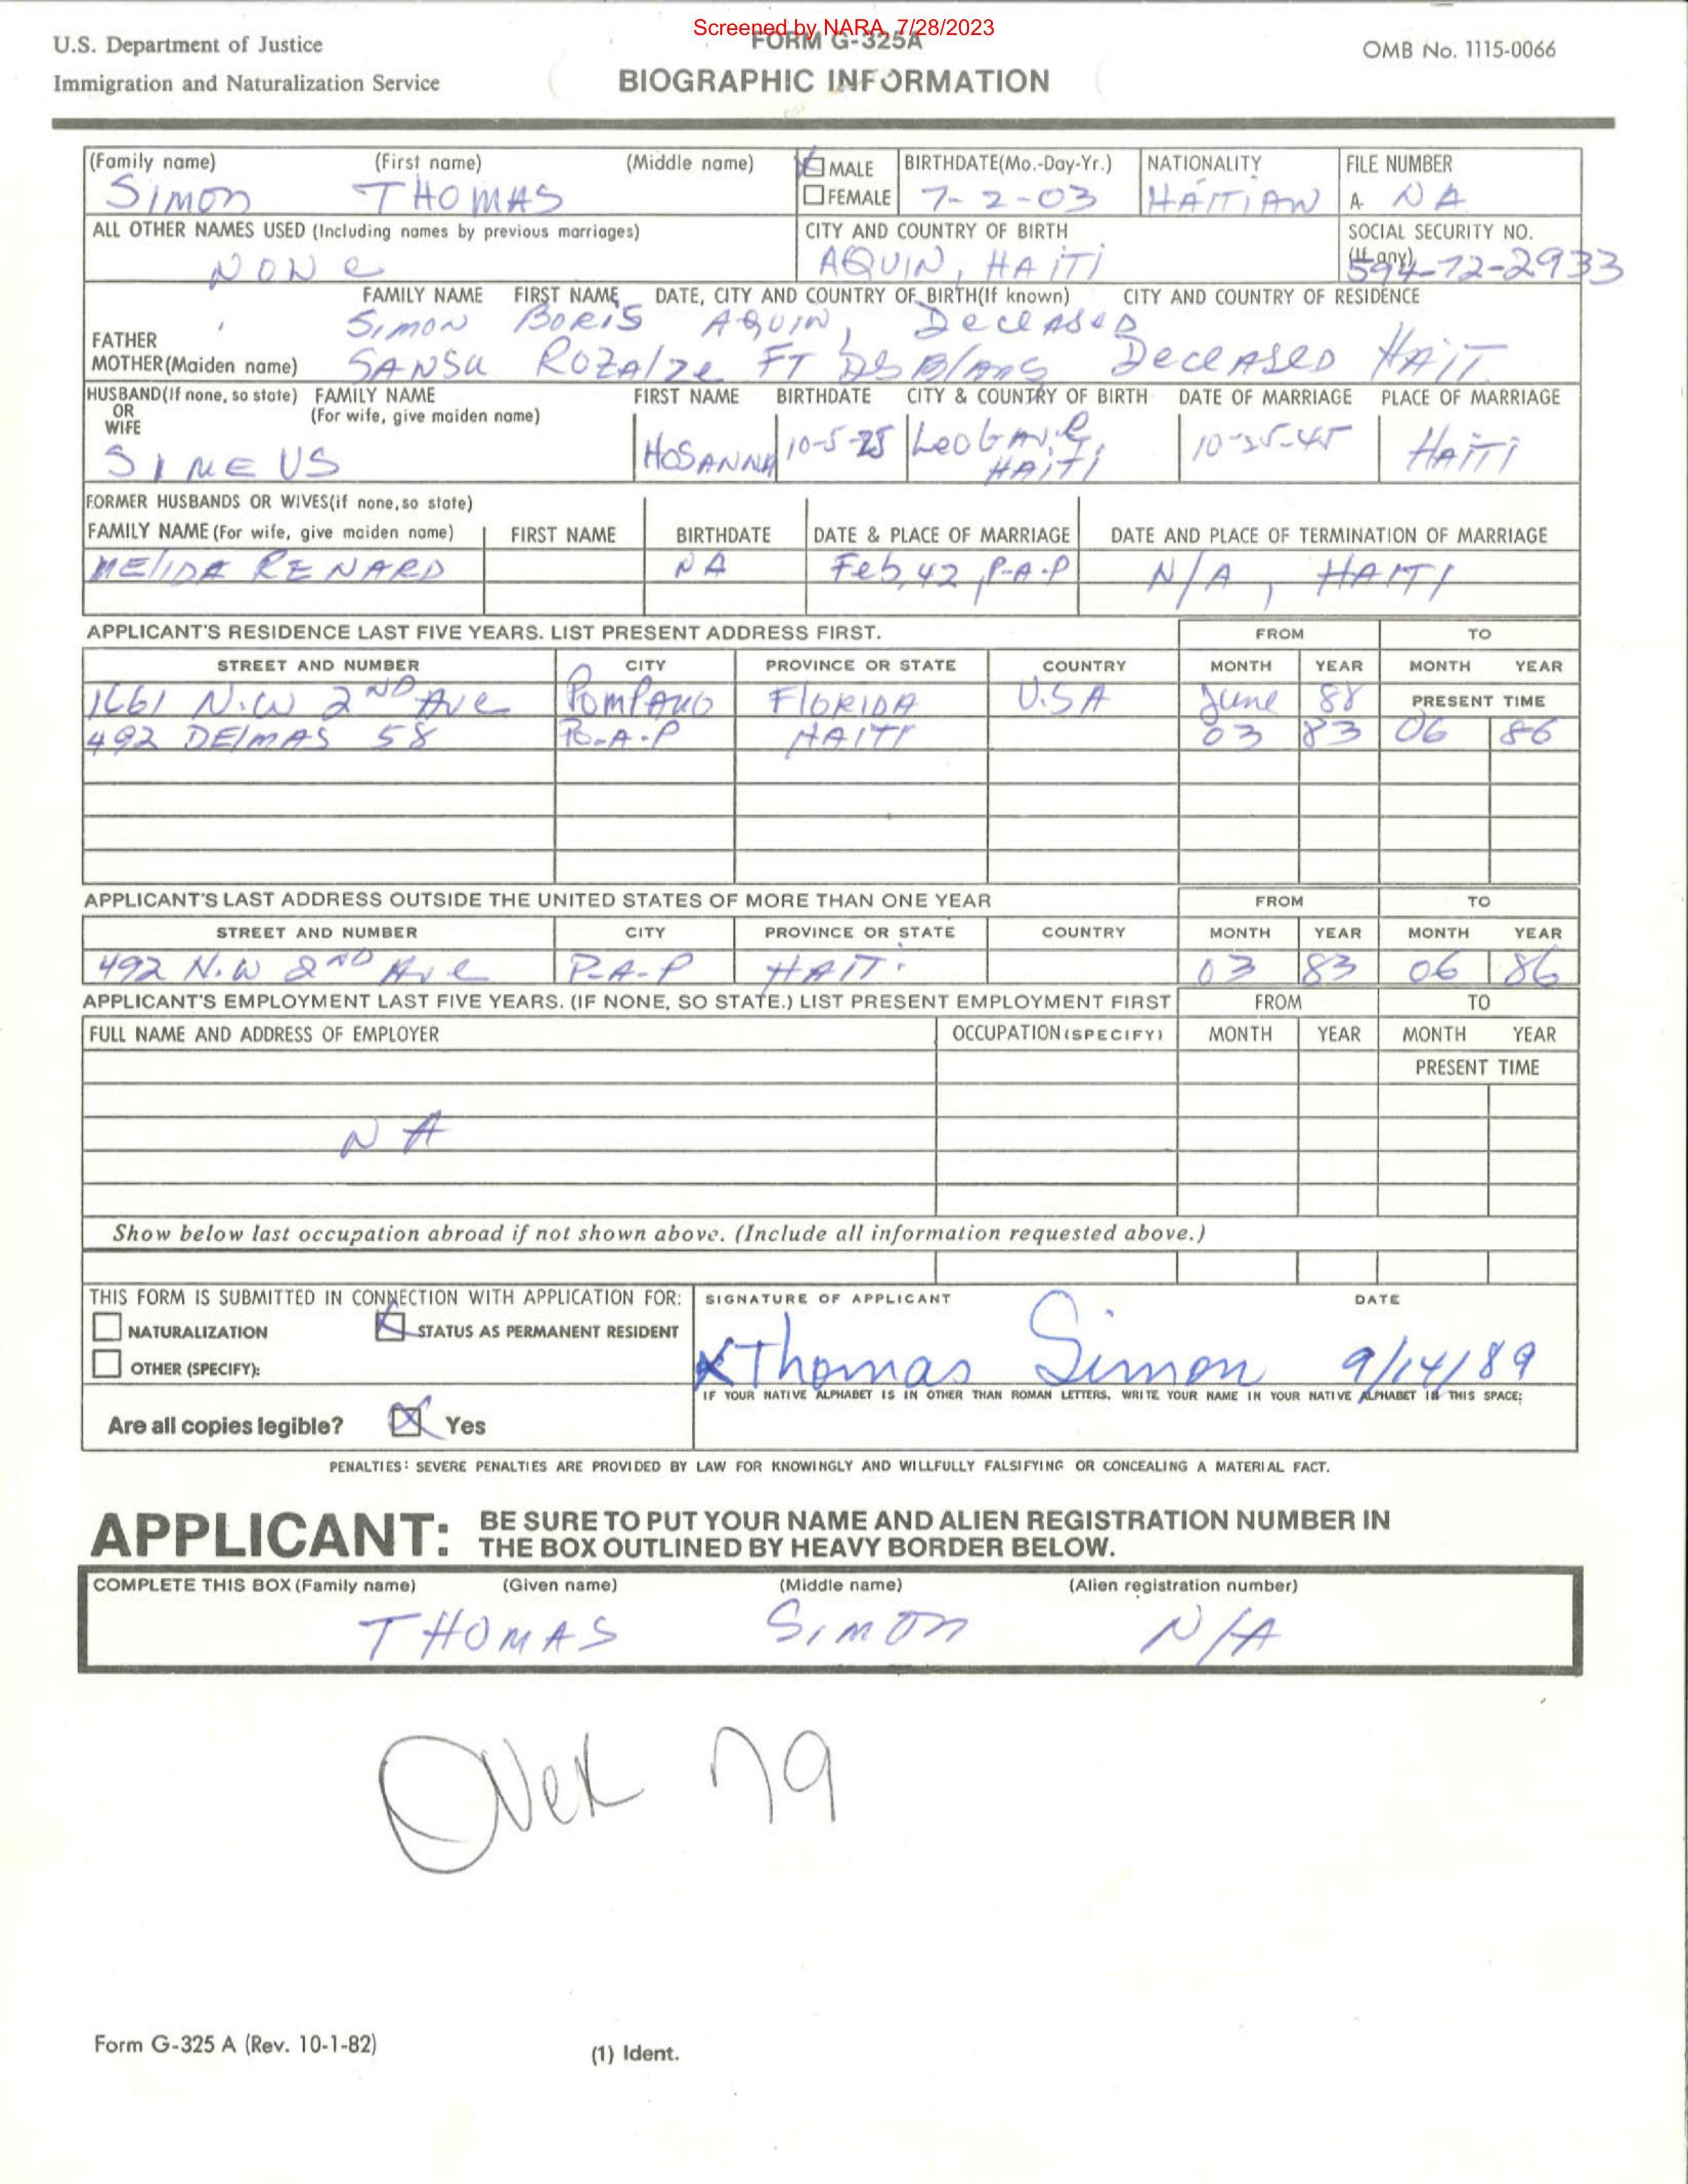 Screened by NARA, 7/28/2023
U.S. Department of Justice
Immigration and Naturalization Service
FORM G-325A
BIOGRAPHIC INFORMATION
OMB No. 1115-0066
(Family name) (First name) (Middle name) MALE FEMALE BIRTHDATE(Mo.-Day-Yr.) NATIONALITY FILE NUMBER
SIMON THOMAS 7-2-03 HAITIAN A- NA
ALL OTHER NAMES USED (Including names by previous marriages) CITY AND COUNTRY OF BIRTH SOCIAL SECURITY NO. (If any)
NONe AQUIN, HAITI 594-72-2933
FAMILY NAME FIRST NAME DATE, CITY AND COUNTRY OF BIRTH(If known) CITY AND COUNTRY OF RESIDENCE
FATHER SIMON BORIS AQUIN, DeceASeD
MOTHER(Maiden name) SANSU ROZAlze FT DeceASeD HAITI
HUSBAND(If none, so state) OR WIFE FAMILY NAME (For wife, give maiden name) FIRST NAME BIRTHDATE CITY & COUNTRY OF BIRTH DATE OF MARRIAGE PLACE OF MARRIAGE
SIMEUS HOSANNA 10-5-25 LeOGANe, HAITI 10-25-45 HAITI
FORMER HUSBANDS OR WIVES(if none,so state)
FAMILY NAME (For wife, give maiden name) FIRST NAME BIRTHDATE DATE & PLACE OF MARRIAGE DATE AND PLACE OF TERMINATION OF MARRIAGE
MElIDA RENARD NA Feb, 42, P-A-P N/A, HAITI
APPLICANT'S RESIDENCE LAST FIVE YEARS. LIST PRESENT ADDRESS FIRST. FROM TO
STREET AND NUMBER CITY PROVINCE OR STATE COUNTRY MONTH YEAR MONTH YEAR
1661 N.W 2ND Ave POMPANO FlORIDA U.S.A June 88 PRESENT TIME
492 DElMAS 58 Po-A-P HAITI 03 83 06 86
APPLICANT'S LAST ADDRESS OUTSIDE THE UNITED STATES OF MORE THAN ONE YEAR FROM TO
STREET AND NUMBER CITY PROVINCE OR STATE COUNTRY MONTH YEAR MONTH YEAR
492 N.W 2ND Ave P-A-P HAITI 03 83 06 86
APPLICANT'S EMPLOYMENT LAST FIVE YEARS. (IF NONE, SO STATE.) LIST PRESENT EMPLOYMENT FIRST FROM TO
FULL NAME AND ADDRESS OF EMPLOYER OCCUPATION (SPECIFY) MONTH YEAR MONTH YEAR
PRESENT TIME
NA
Show below last occupation abroad if not shown above. (Include all information requested above.)
THIS FORM IS SUBMITTED IN CONNECTION WITH APPLICATION FOR: SIGNATURE OF APPLICANT DATE
NATURALIZATION STATUS AS PERMANENT RESIDENT
OTHER (SPECIFY):
X Thomas Simon 9/14/89
IF YOUR NATIVE ALPHABET IS IN OTHER THAN ROMAN LETTERS, WRITE YOUR NAME IN YOUR NATIVE ALPHABET IN THIS SPACE:
Are all copies legible? Yes
PENALTIES: SEVERE PENALTIES ARE PROVIDED BY LAW FOR KNOWINGLY AND WILLFULLY FALSIFYING OR CONCEALING A MATERIAL FACT.
APPLICANT: BE SURE TO PUT YOUR NAME AND ALIEN REGISTRATION NUMBER IN
THE BOX OUTLINED BY HEAVY BORDER BELOW.
COMPLETE THIS BOX (Family name) (Given name) (Middle name) (Alien registration number)
THOMAS SIMON N/A
Over 79
Form G-325 A (Rev. 10-1-82)
(1) Ident.